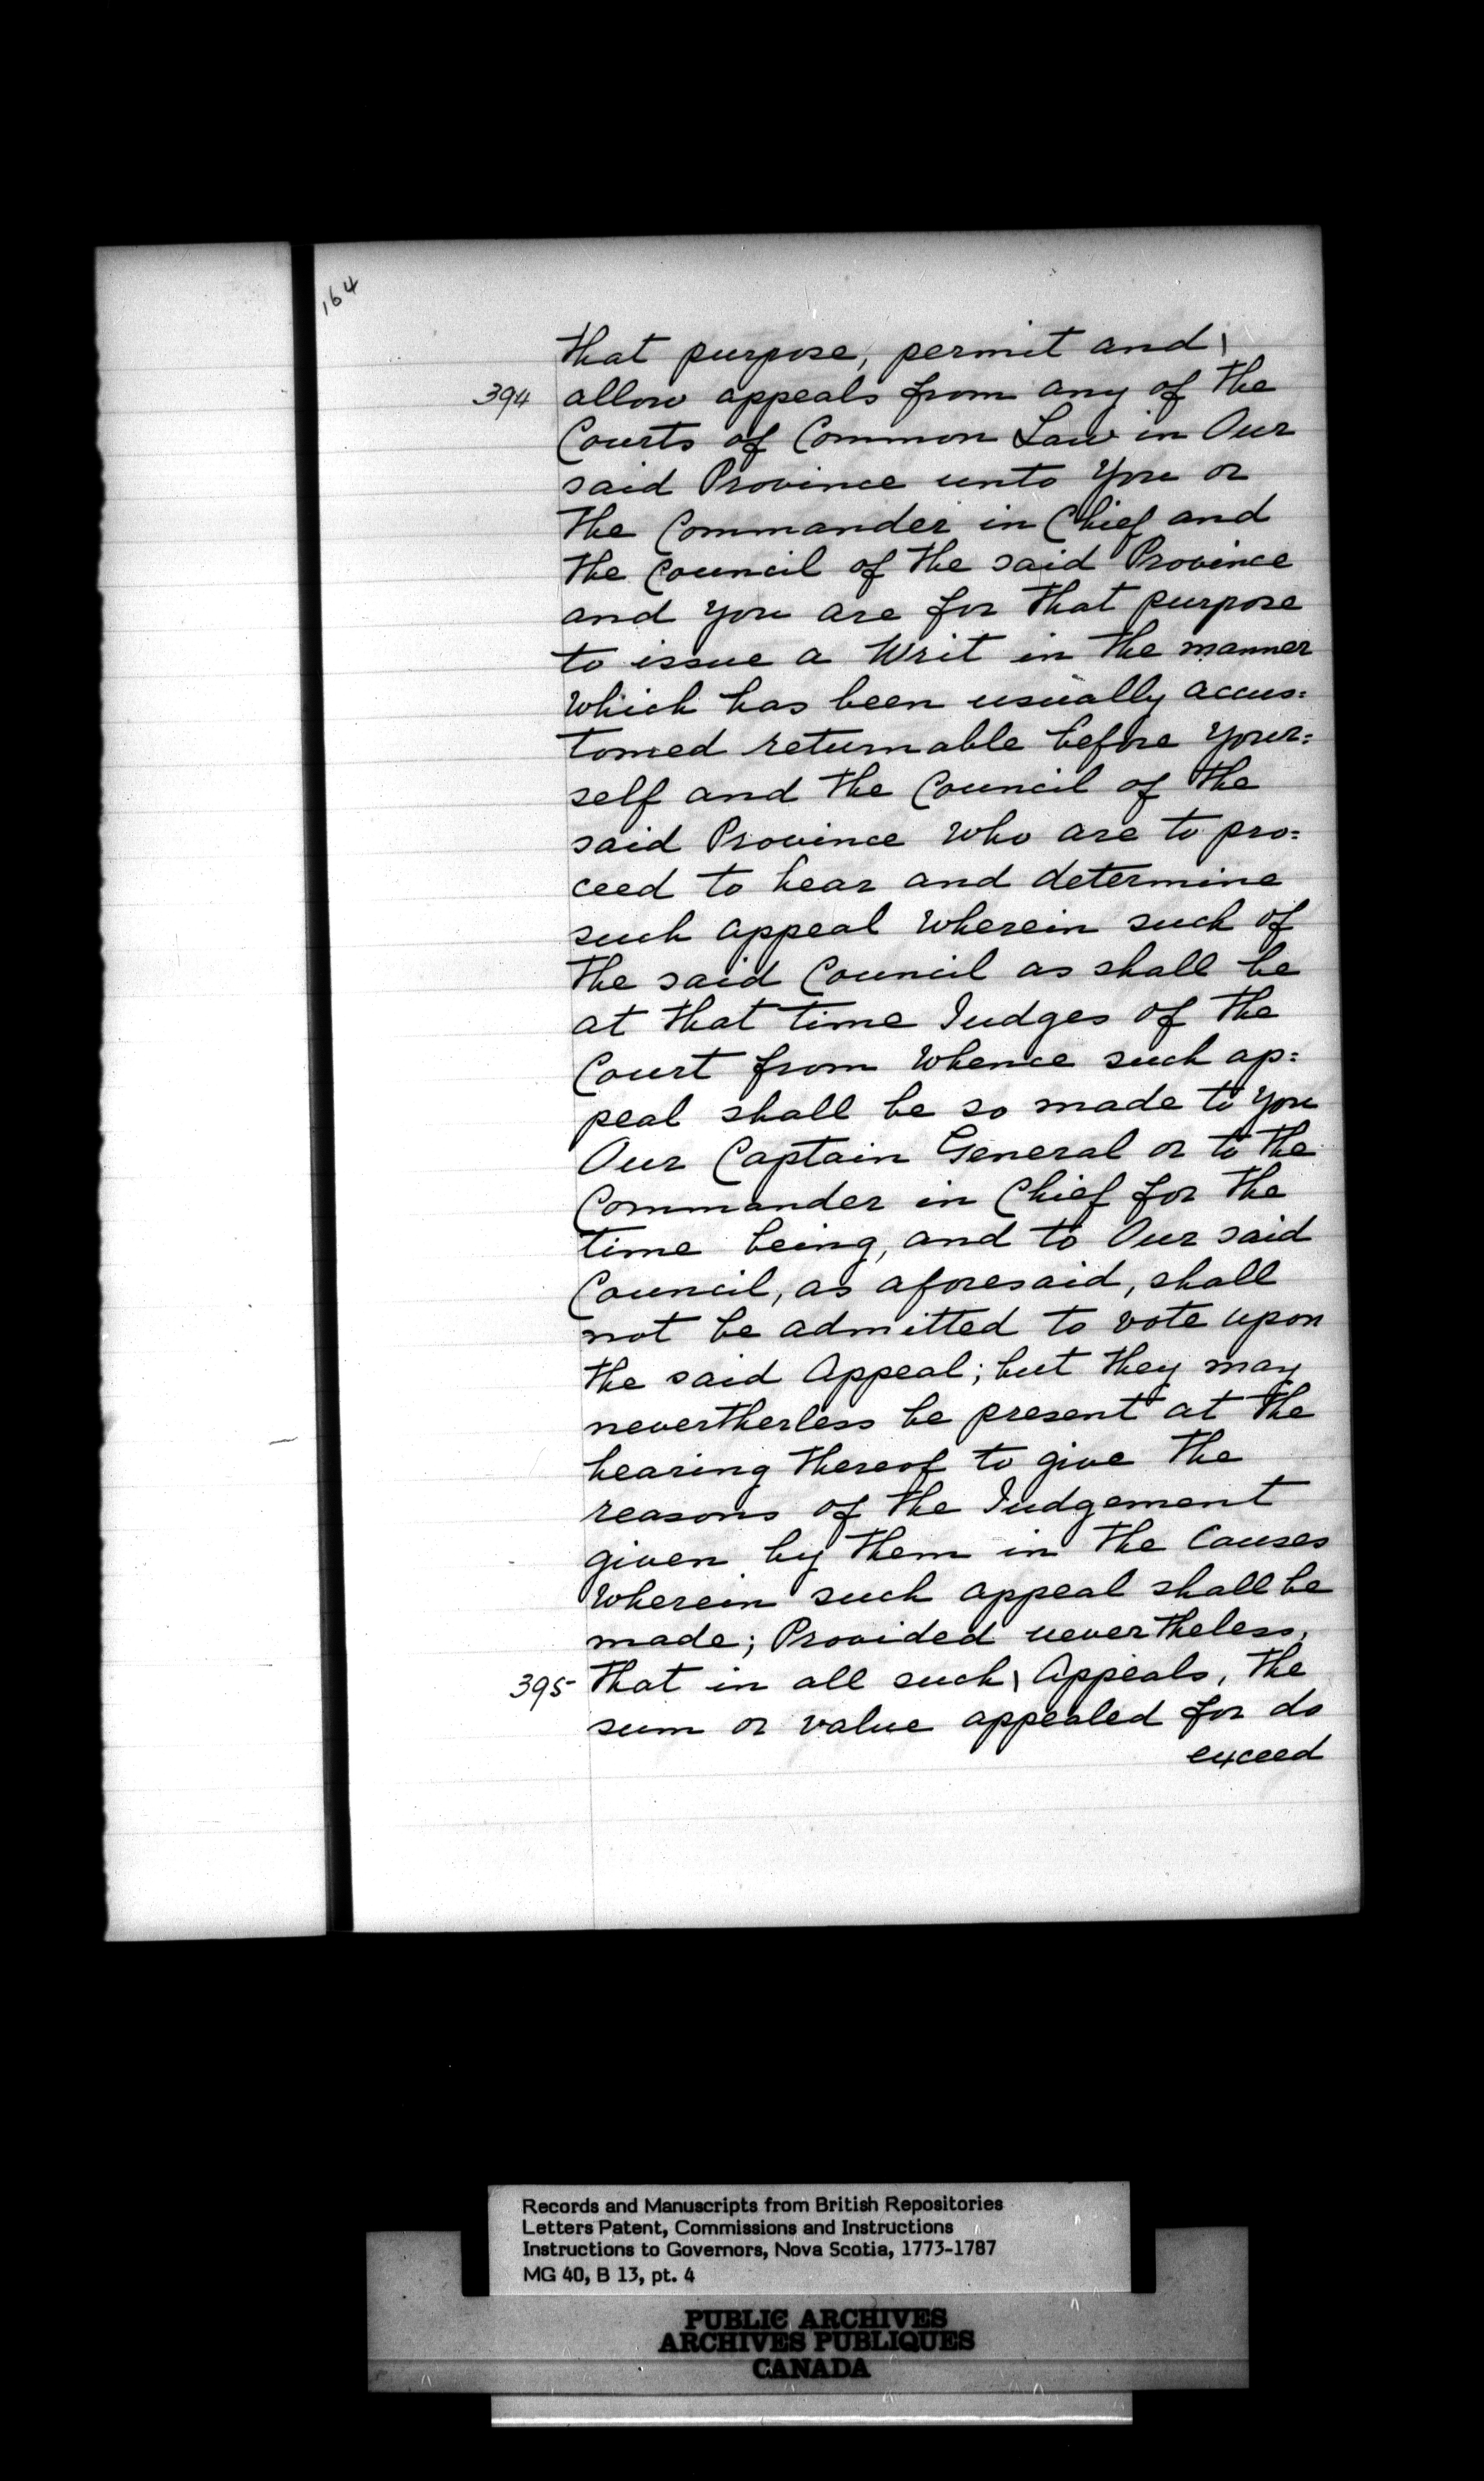 164
that purpose, permit and \
394 allow appeals from any of the
Courts of Common Law in Our
said Province unto You or
the Commander in Chief and
the Council of the said Province
and you are for that purpose
to issue a Writ in the manner
which has been usually accus=
tomed returnable before your=
self and the Council of the
said Province who are to pro=
ceed to hear and determine
such appeal wherein such of
the said Council as shall be
at that time Judges of the
Court from whence such ap=
peal shall be so made to you
Our Captain General or to the
Commander in Chief for the
time being, and to Our said
Council, as aforesaid, shall
not be admitted to vote upon
the said Appeal; but they may
nevertherless be present at the
hearing thereof to give the
reasons of the Judgement
given by them in the Causes
wherein such appeal shall be
made; Provided nevertheless,
395 that in all such \ Appeals, the
sum or value appealed for do
exceed
Records and Manuscripts from British Repositories
Letters Patent, Commissions and Instructions
Instructions to Governors, Nova Scotia, 1773-1787
MG 40, B 13, pt. 4
PUBLIC ARCHIVES
ARCHIVES PUBLIQUES
CANADA